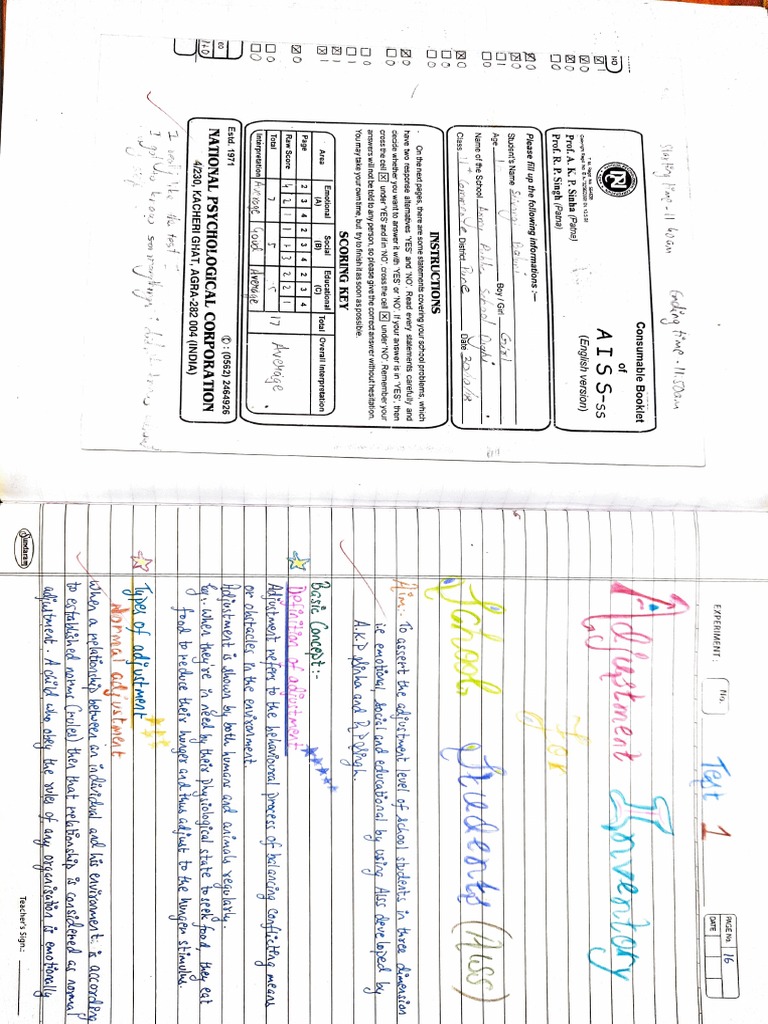 Starting time - 11:40am Ending time - 11:50am
Consumable Booklet
of
AISS-SS
(English version)
Prof. A. K. P. Sinha (Patna)
Prof. R. P. Singh (Patna)
Please fill up the following informations :–
Student's Name
Age Boy / Girl Girl
Name of the School Public School
Class 11th District Pune Date
INSTRUCTIONS
On the next pages, there are some statements covering your school problems, which
have two response alternatives 'YES' and 'NO'. Read every statements carefully and
decide whether you want to answer it with 'YES' or 'NO'. If your answer is in 'YES', then
cross the cell ☒ under 'YES' and if in 'NO', cross the cell ☒ under 'NO'. Remember your
answers will not be told to any person, so please give the correct answer without hesitation.
You may take your own time, but try to finish it as soon as possible.
SCORING KEY
Area Emotional (A) Social (B) Educational (C) Total Overall Interpretation
Page 2 3 4 2 3 4 2 3 4
Raw Score 4 2 1 1 1 3 2 2 1
Total 7 5 5 17 Average
Interpretation Average Good Average
Estd. 1971 ✆ : (0562) 2464926
NATIONAL PSYCHOLOGICAL CORPORATION
4/230, KACHERI GHAT, AGRA-282 004 (INDIA)
EXPERIMENT: No. Test 1 PAGE No. 16
DATE
Adjustment Inventory
for
School Students (AISS)
Aim:- To assert the adjustment level of school students in three dimension
i.e emotional, social and educational by using AISS developed by
A.K.P Sinha and R.P Singh.
Basic Concept:-
Definition of adjustment
Adjustment refers to the behavioural process of balancing conflicting means
or obstacles in the environment.
Adjustment is shown by both humans and animals regularly.
Eg:. when they're in need by their physiological state to seek food, they eat
food to reduce their hunger and thus adjust to the hunger stimulus.
Types of adjustment
Normal adjustment
When a relationship between an individual and his environment is according
to established norms (rules) then that relationship is considered as normal
adjustment. A child who obey the rules of any organisation is emotionally
Sundaram Teacher's Sign.: